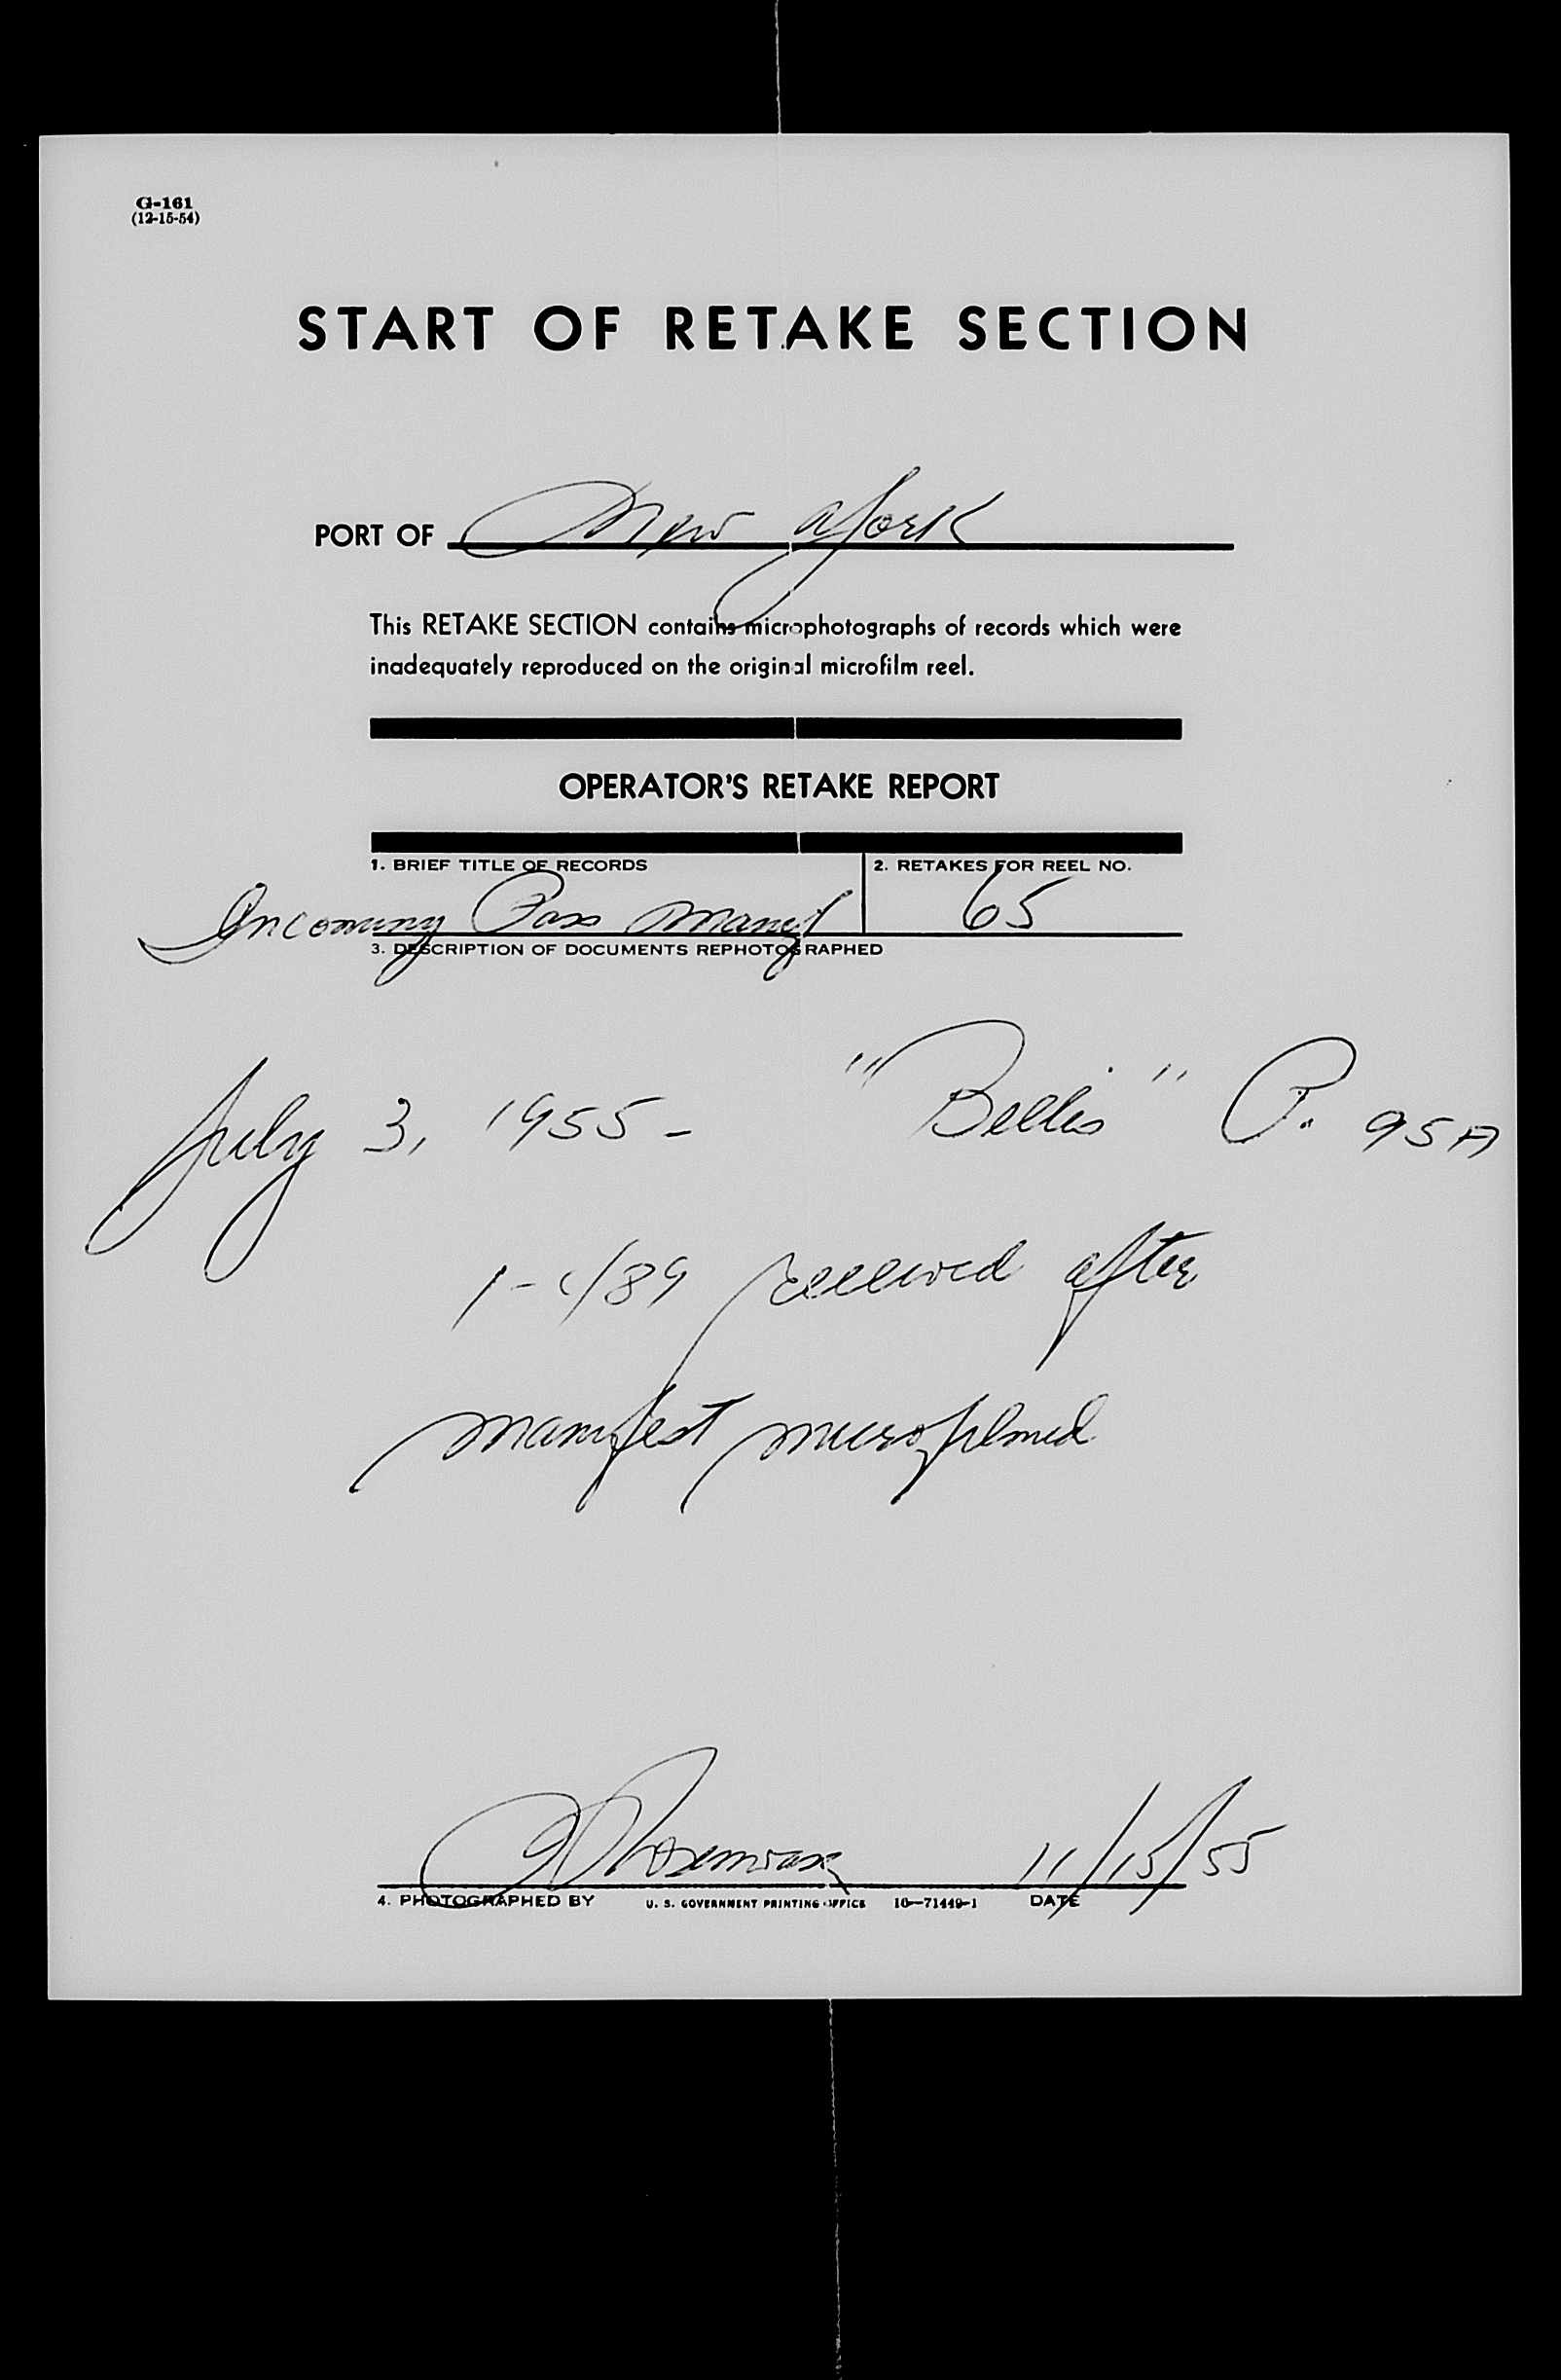 G-161
(12-15-54)
START OF RETAKE SECTION
PORT OF New York
This RETAKE SECTION contains microphotographs of records which were
inadequately reproduced on the original microfilm reel.
OPERATOR'S RETAKE REPORT
1. BRIEF TITLE OF RECORDS 2. RETAKES FOR REEL NO.
Incoming Pass Manif 65
3. DESCRIPTION OF DOCUMENTS REPHOTOGRAPHED
July 3, 1955 - "Bellis" P. 95A
received after
manifest microfilmed
11/15/55
4. PHOTOGRAPHED BY U. S. GOVERNMENT PRINTING OFFICE 16—71449-1 DATE